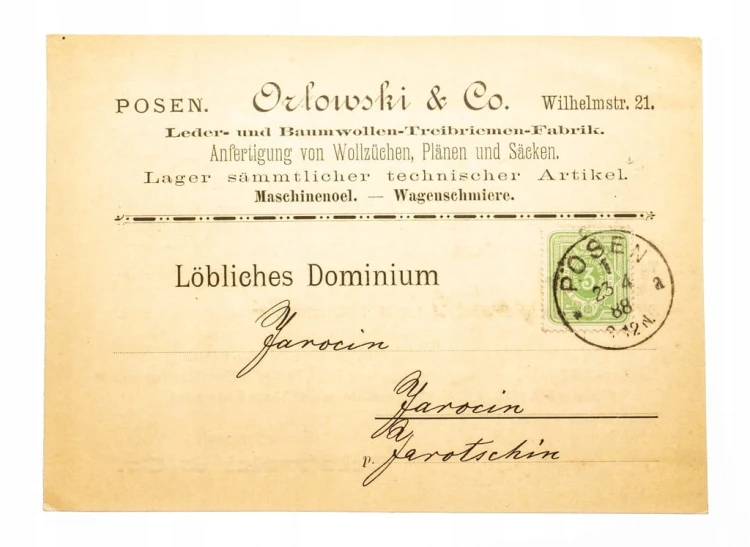 POSEN. Orlowski & Co. Wilhelmstr. 21.
Leder- und Baumwollen-Treibriemen-Fabrik.
Anfertigung von Wollzüchen, Plänen und Säcken.
Lager sämmtlicher technischer Artikel.
Maschinenoel. — Wagenschmiere.
POSEN
1
3
23 4
88
12 N.
* a
Löbliches Dominium
Jarocin
Jarocin
p. Jarotschin